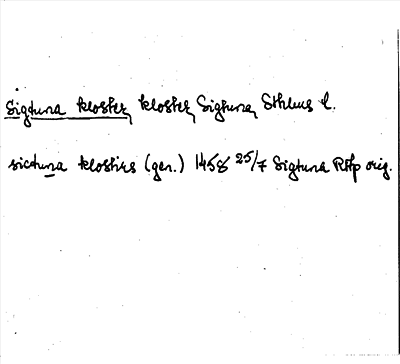 Sigtuna kloster, kloster, Sigtuna, Sthlms l.
sictuna klostirs (gen.) 1458 25/7 Sigtuna RAp orig.